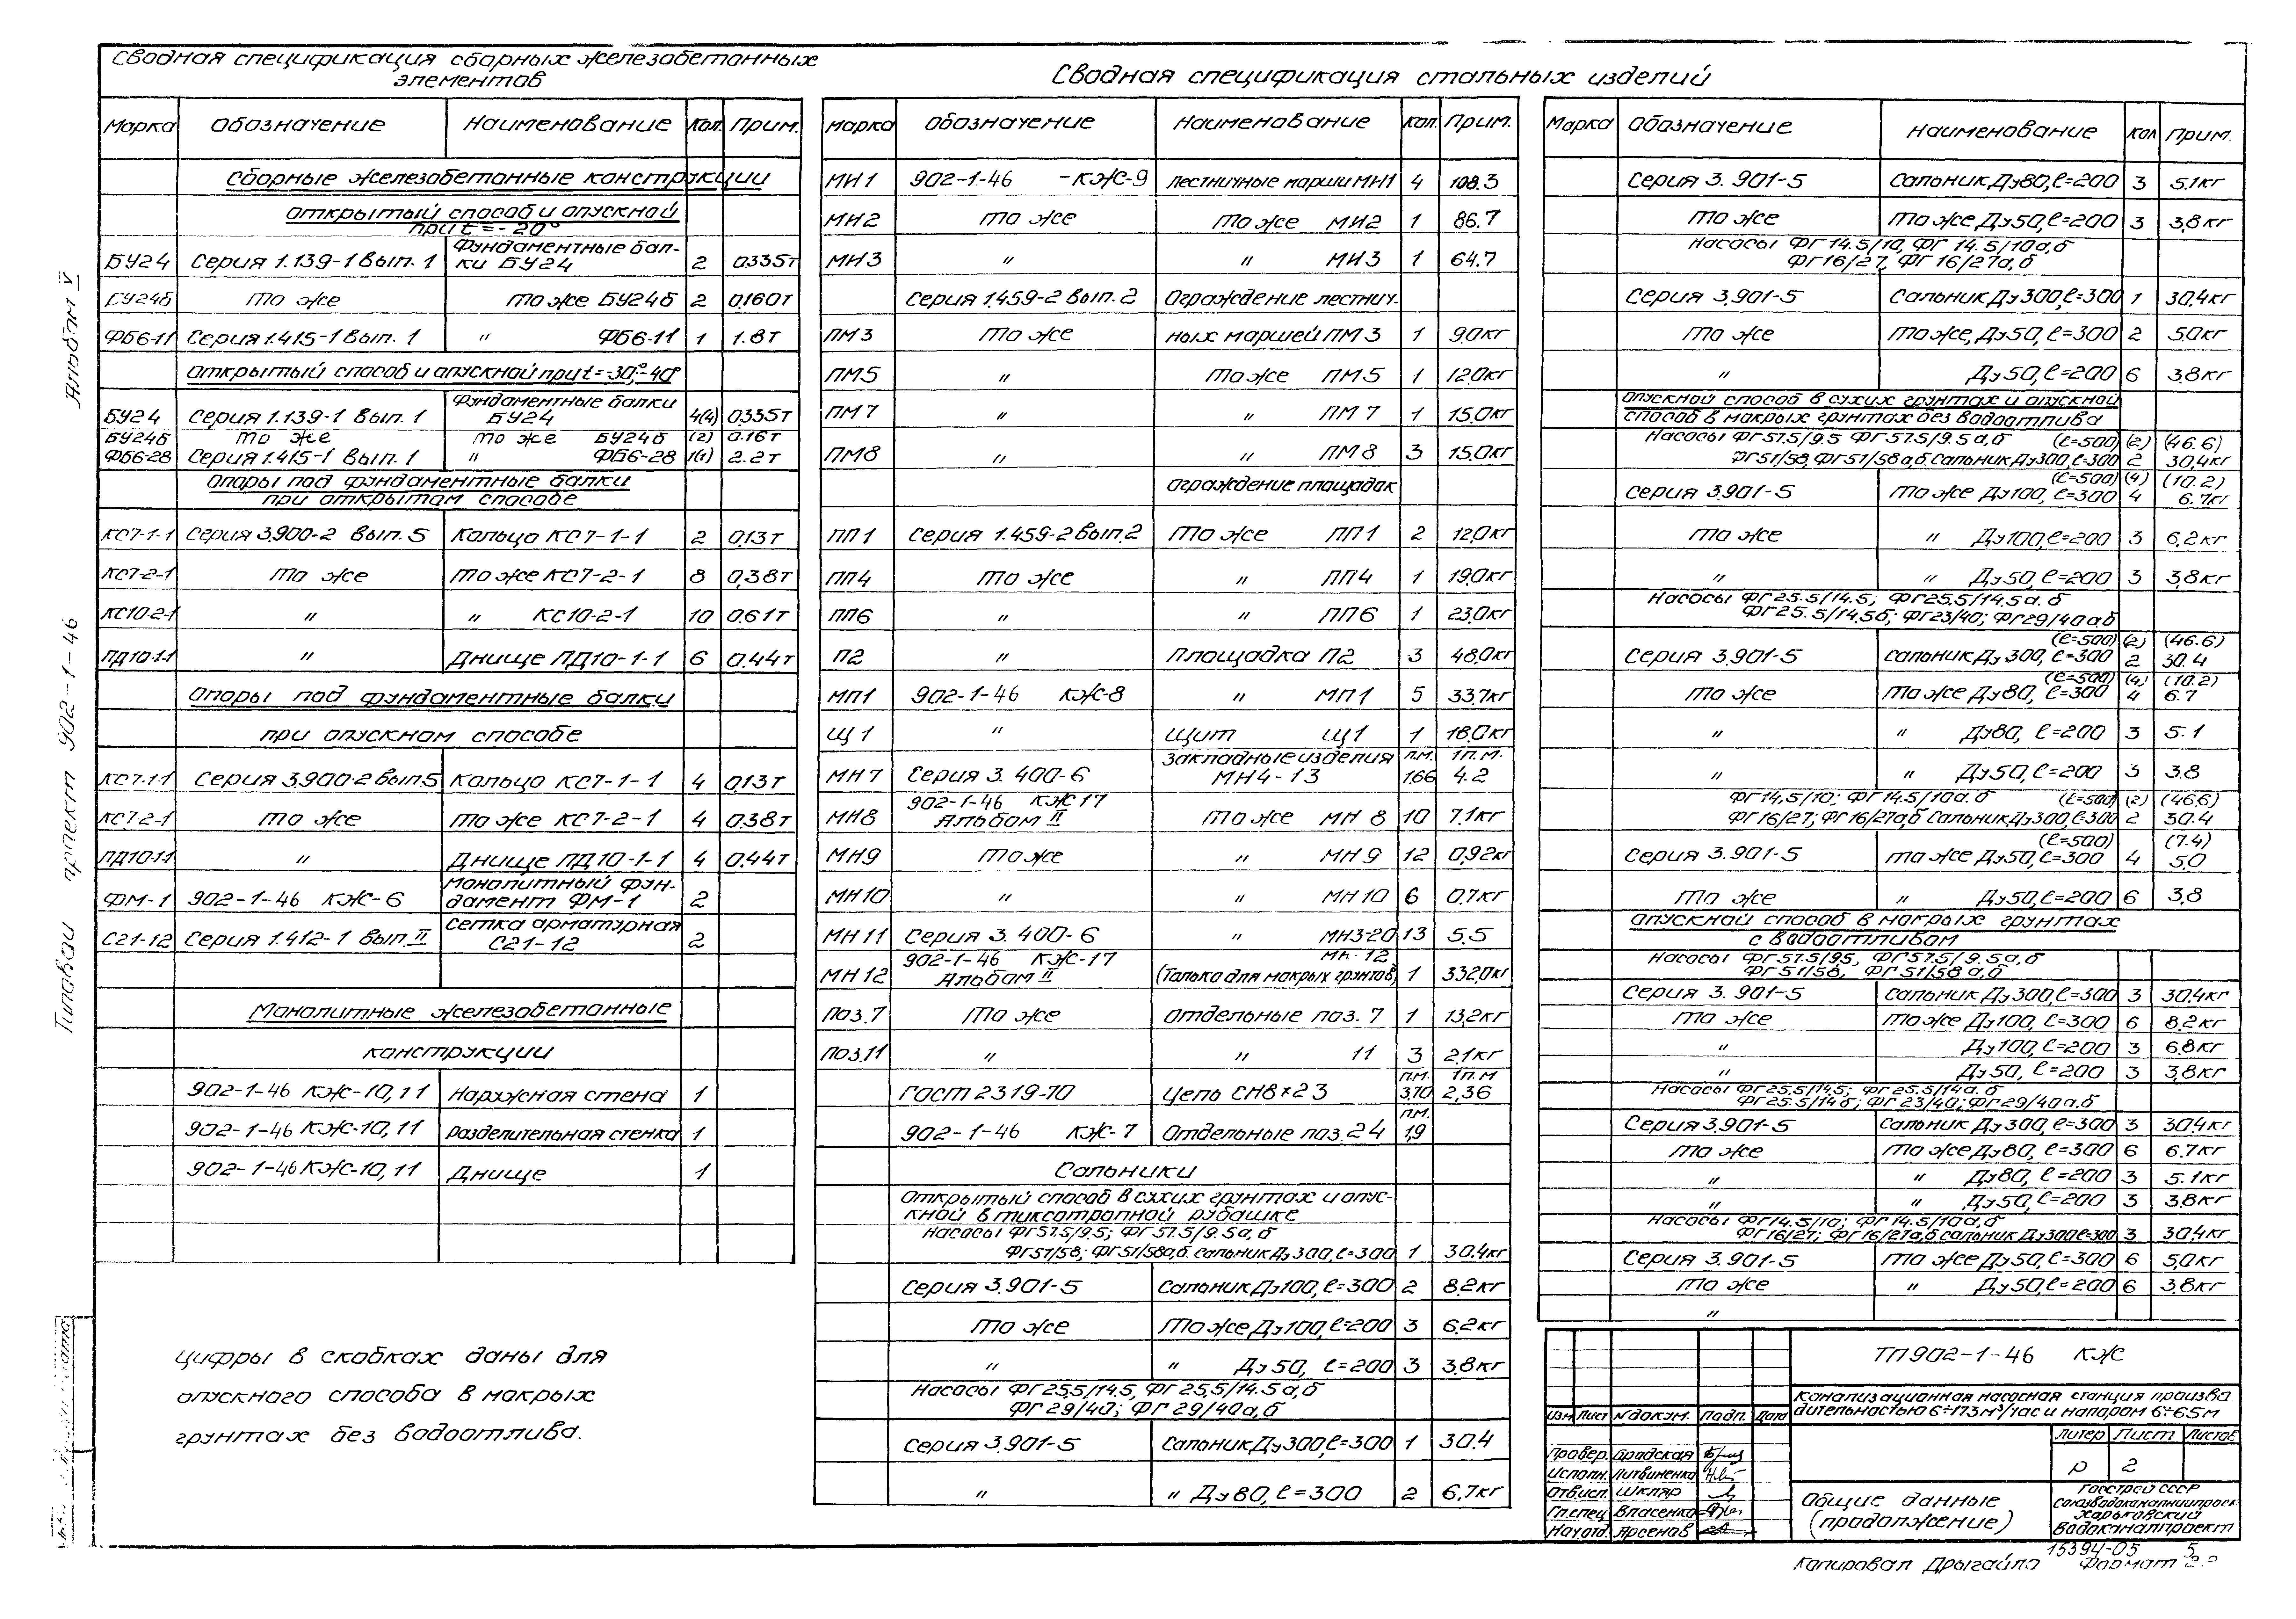 Сводная спецификация сборных железобетонных
элементов
Марка Обозначение Наименование Кол. Прим.
Сборные железобетонные конструкции
Открытый способ и опускной
при t=-20°
БУ24 Серия 1.139-1 вып. 1 Фундаментные бал-
ки БУ24 2 0.335т
БУ24б То же То же БУ24б 2 0.160т
ФБ6-11 Серия 1.415-1 вып. 1 " ФБ6-11 1 1.8т
Открытый способ и опускной при t=-30°,-40°
БУ24 Серия 1.139-1 вып. 1 Фундаментные балки
БУ24 4(4) 0.335т
БУ24б То же То же БУ24б (2) 0.16т
ФБ6-28 Серия 1.415-1 вып. 1 " ФБ6-28 1(1) 2.2т
Опоры под фундаментные балки
при открытом способе
КС7-1-1 Серия 3.900-2 вып. 5 Кольцо КС7-1-1 2 0.13т
КС7-2-1 То же То же КС7-2-1 8 0,38т
КС10-2-1 " " КС10-2-1 10 0.61т
ПД10-1-1 " Днище ПД10-1-1 6 0.44т
Опоры под фундаментные балки
при опускном способе
КС7-1-1 Серия 3.900-2 вып 5 Кольцо КС7-1-1 4 0.13т
КС7-2-1 То же То же КС7-2-1 4 0.38т
ПД10-1-1 " Днище ПД10-1-1 4 0.44т
ФМ-1 902-1-46 КЖ-6 Монолитный фун-
дамент ФМ-1 2
С21-12 Серия 1.412-1 вып. II Сетка арматурная
С21-12 2
Монолитные железобетонные
конструкции
902-1-46 КЖ-10,11 Наружная стена 1
902-1-46 КЖ-10,11 Разделительная стенка 1
902-1-46 КЖ-10,11 Днище 1
Цифры в скобках даны для
опускного способа в мокрых
грунтах без водоотлива.
Сводная спецификация стальных изделий
Марка Обозначение Наименование Кол. Прим.
МИ1 902-1-46 -КЖ-9 Лестничные марши МИ1 4 108.3
МИ2 То же То же МИ2 1 86.7
МИ3 " " МИ3 1 64.7
Серия 1.459-2 вып. 2 Ограждение лестнич.
ПМ3 То же ных маршей ПМ3 1 9.0кг
ПМ5 " То же ПМ5 1 12.0кг
ПМ7 " " ПМ7 1 15.0кг
ПМ8 " " ПМ8 3 15.0кг
Ограждение площадок
ПП1 Серия 1.459-2 вып.2 То же ПП1 2 12.0кг
ПП4 То же " ПП4 1 19.0кг
ПП6 " " ПП6 1 23.0кг
П2 " Площадка П2 3 48.0кг
МП1 902-1-46 КЖ-8 " МП1 5 33.7кг
Щ1 " Щит Щ1 1 18.0кг
МН7 Серия 3.400-6 Закладные изделия
МН4-13 п.м. 1.66 1п.м. 4.2
МН8 902-1-46 КЖ 17
Альбом II То же МН 8 10 7.1кг
МН9 То же " МН 9 12 0,92кг
МН10 " " МН 10 6 0.7кг
МН 11 Серия 3.400-6 " МН3-20 13 5.5
МН 12 902-1-46 КЖ-17
Альбом II МН-12
(Только для мокрых грунтов) 1 332.0кг
Поз.7 То же Отдельные поз. 7 1 13.2кг
Поз.11 " " 11 3 2.1кг
Гост 2319-70 Цепь СН8×23 п.м. 3.70 1п.м 2,36
902-1-46 КЖ-7 Отдельные поз. 24 п.м. 1,9
Сальники
Открытый способ в сухих грунтах и опус-
кной в тиксотропной рубашке
Насосы ФГ57.5/9.5; ФГ 57.5/9.5а,б
ФГ51/58; ФГ51/58а,б. Сальник Ду300, ℓ=300 1 30.4кг
Серия 3.901-5 Сальник Ду100, ℓ=300 2 8.2кг
То же То же Ду100, ℓ=200 3 6.2кг
" " Ду50, ℓ=200 3 3.8кг
Насосы ФГ25,5/14.5, ФГ 25,5/14.5а,б
ФГ29/40; ФГ 29/40а,б
Серия 3.901-5 Сальник Ду300, ℓ=300 1 30.4
" " Ду80, ℓ=300 2 6,7кг
Марка Обозначение Наименование Кол Прим.
Серия 3.901-5 Сальник Ду80, ℓ=200 3 5.1кг
То же То же Ду50, ℓ=200 3 3,8кг
Насосы ФГ14.5/10, ФГ 14.5/10а,б
ФГ16/27, ФГ 16/27а,б
Серия 3.901-5 Сальник Ду300, ℓ=300 1 30.4кг
То же То же, Ду50, ℓ=300 2 5.0кг
" Ду50, ℓ=200 6 3.8кг
Опускной способ в сухих грунтах и опускной
способ в мокрых грунтах без водоотлива
Насосы ФГ57.5/9.5 ФГ57.5/9.5а,б (ℓ=500) (2) (46.6)
ФГ51/58, ФГ51/58а,б. Сальник Ду300, ℓ=300 2 30.4кг
(ℓ=500) (4) (10.2)
Серия 3.901-5 То же Ду100, ℓ=300 4 6.7кг
То же " Ду100, ℓ=200 3 6,2кг
" " Ду50, ℓ=200 3 3,8кг
Насосы ФГ25.5/14.5; ФГ25,5/14,5а.б
ФГ25.5/14,5б; ФГ23/40; ФГ29/40а,б
(ℓ=500) (2) (46.6)
Серия 3.901-5 Сальник Ду300, ℓ=300 2 30.4
(ℓ=500) (4) (10.2)
То же То же Ду80, ℓ=300 4 6.7
" " Ду80, ℓ=200 3 5.1
" " Ду50, ℓ=200 3 3.8
ФГ14,5/10; ФГ14.5/10а.б (ℓ=500) (2) (46.6)
ФГ16/27; ФГ16/27а,б Сальник Ду300, ℓ=300 2 30.4
(ℓ=500) (7.4)
Серия 3.901-5 То же Ду50, ℓ=300 4 5.0
То же " Ду50, ℓ=200 6 3,8
Опускной способ в мокрых грунтах
с водоотливом
Насосы ФГ57.5/9.5, ФГ57.5/9.5а,б
ФГ51/58, ФГ51/58а,б
Серия 3.901-5 Сальник Ду300, ℓ=300 3 30.4кг
То же То же Ду100, ℓ=300 6 8.2кг
" Ду100, ℓ=200 3 6.8кг
Ду50, ℓ=200 3 3,8кг
Насосы ФГ25.5/14.5; ФГ25.5/14а.б
ФГ25.5/14б; ФГ23/40; ФГ29/40а,б
Серия 3.901-5 Сальник Ду300, ℓ=300 3 30.4кг
То же То же Ду80, ℓ=300 6 6.7кг
" " Ду80, ℓ=200 3 5.1кг
" " Ду50, ℓ=200 3 3.8кг
Насосы ФГ14.5/10; ФГ14.5/10а,б
ФГ16/27; ФГ16/27а,б Сальник Ду300 ℓ=300 3 30.4кг
Серия 3.901-5 То же Ду50, ℓ=300 6 5,0кг
То же " Ду50, ℓ=200 6 3.8кг
"
ТП902-1-46 КЖ
Канализационная насосная станция произво
дительностью 6÷173м³/час и напором 6÷65м
Изм Лист № докум. Подп. Дата
Провер. Бродская
Исполн. Литвиненко
Отв.исп. Шкляр
Гл.спец Власенко
Нач.отд. Арсенов
Литер Лист Листов
Р 2
Общие данные
(продолжение)
Госстрой СССР
Союзводоканалниипроект
Харьковский
Водоканалпроект
15394-05 5
Копировал Дрыгайло Формат
Типовой проект 902-1-46 Альбом V